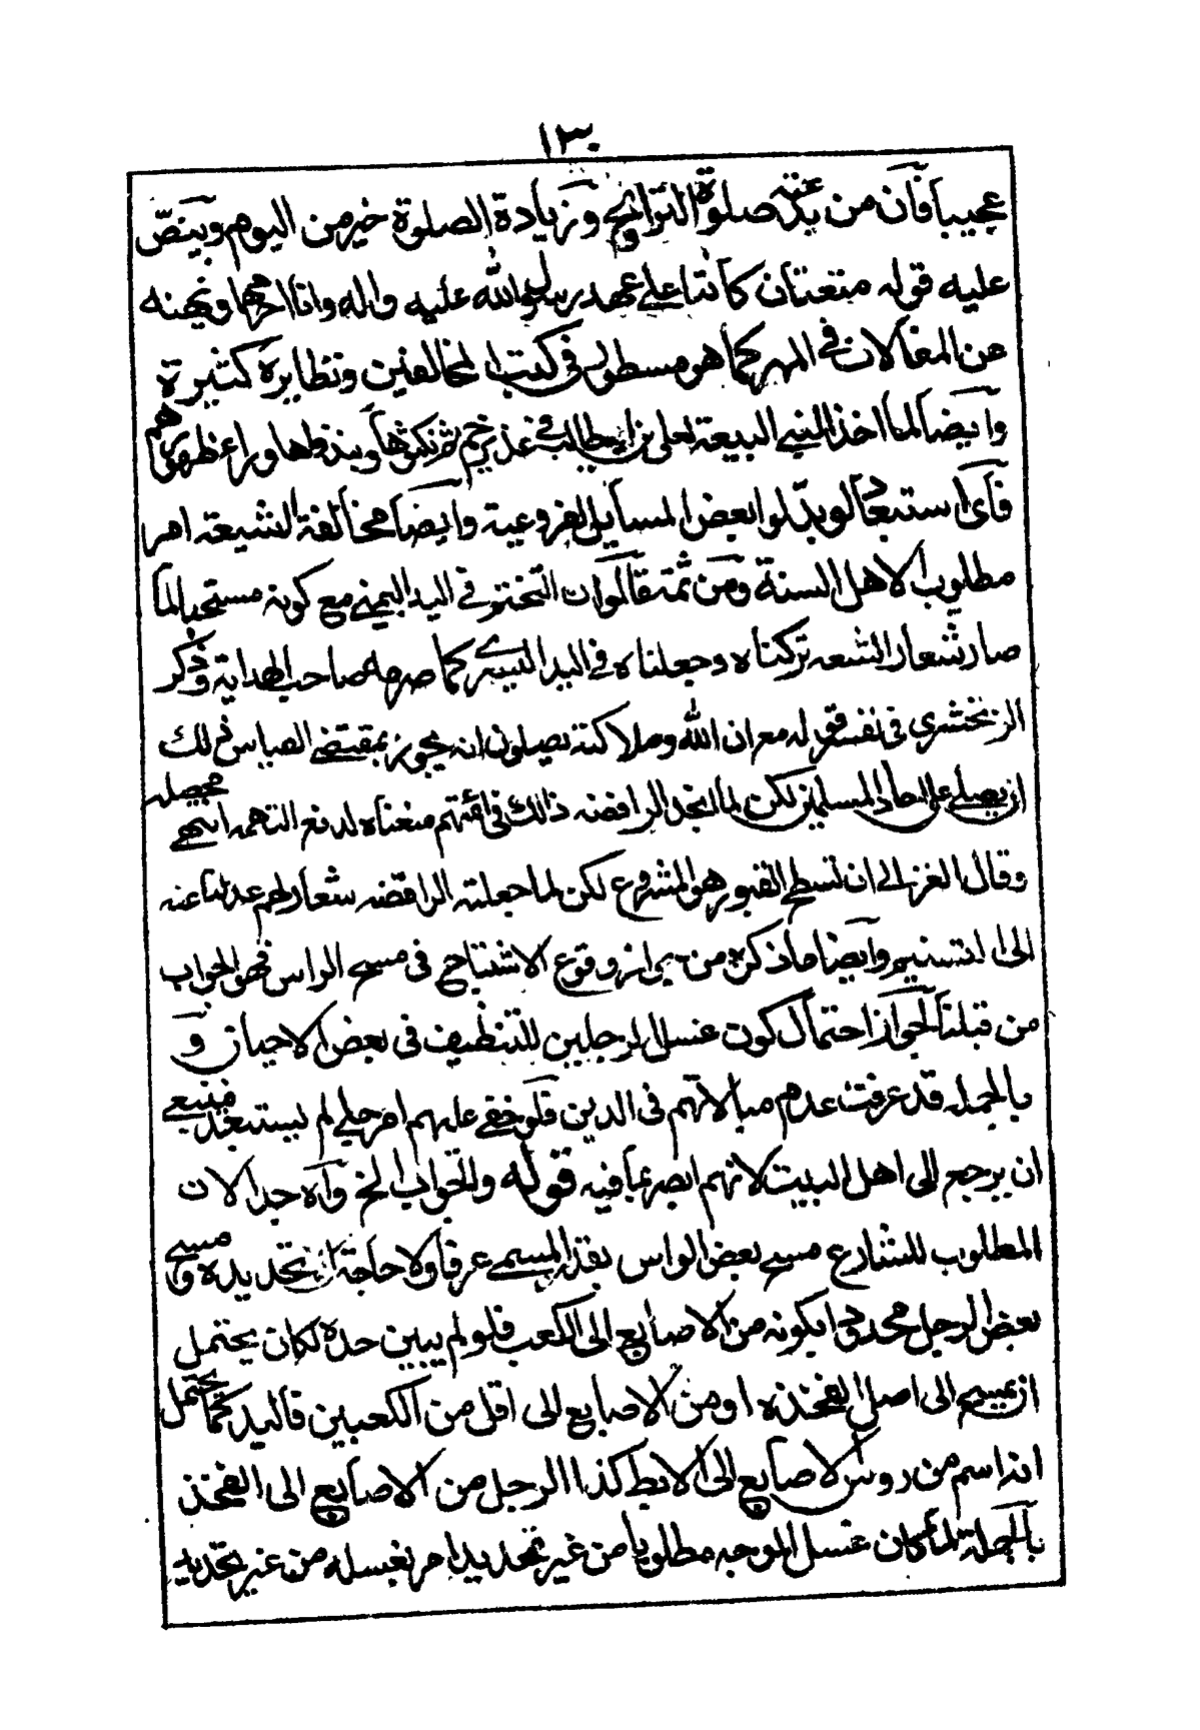 ١٣٠
عجيبا فان من بدعته صلوة التراويح وزيادة الصلوة خير من اليوم وينصّ
عليه قوله متعتان كانتا على عهد رسول الله عليه واله وانا احرمهما ونهيه
عن المغالات في المهر كما هو مسطور في كتب المخالفين ونظايره كثيرة
وايضا لما اخذ النبي البيعة لعلي بن ابيطالب في غدير خم ثم نكثوها ونبذوها وراء ظهورهم
فاى استبعاد لو بدّلوا بعض المسايل الفروعية وايضا مخالفة الشيعة امر
مطلوب لاهل السنة ومن ثمة قالوا ان التختم في اليد اليمنى مع كونه مستحبا لما
صار شعار الشيعه تركناه وجعلناه في اليد اليسرى كما صرح به صاحب الهداية وذكر
الزمخشري في تفسير قوله ان الله وملائكته يصلون انه يجوز بمقتضى القياس
ان يصلى على احاد المسلمين لكن لما اتخذ الرافضه ذالك في ائمتهم منعناه لدفع التهمه انتهى محصله
وقال الغزالى ان تسطح القبور هو المشروع لكن لما جعلته الرافضه شعارا لهم عدلنا عنه
الى التسنيم وايضا ما ذكره من جواز وقوع الاشتباه في مسح الراس فهو الجواب
من قبلنا لجواز احتمال كون غسل الرجلين للتنظيف في بعض الاحيان و
بالجمله قد عرفت عدم مبالاتهم في الدين فلو خفى عليهم امر جلي لم يستبعد فينبغي
ان يرجع الى اهل البيت لانهم ابصر بما فيه قوله والجواب الخ واه جدا لان
المطلوب للشارع مسح بعض الراس بقدر المسمى عرفا ولا حاجة الى تحديده ومسح
بعض الرجل محدودا بكونه من الاصابع الى الكعب فلو لم يبين حده لكان يحتمل
ان يمسح الى اصل الفخذ او من الاصابع الى اقل من الكعبين فاليد كما يحتمل
انه اسم من روس الاصابع الى الابط كذا الرجل من الاصابع الى الفخذ
بالجملة لما كان غسل الوجه مطلوبا من غير تحديد امر بغسله من غير تحديد